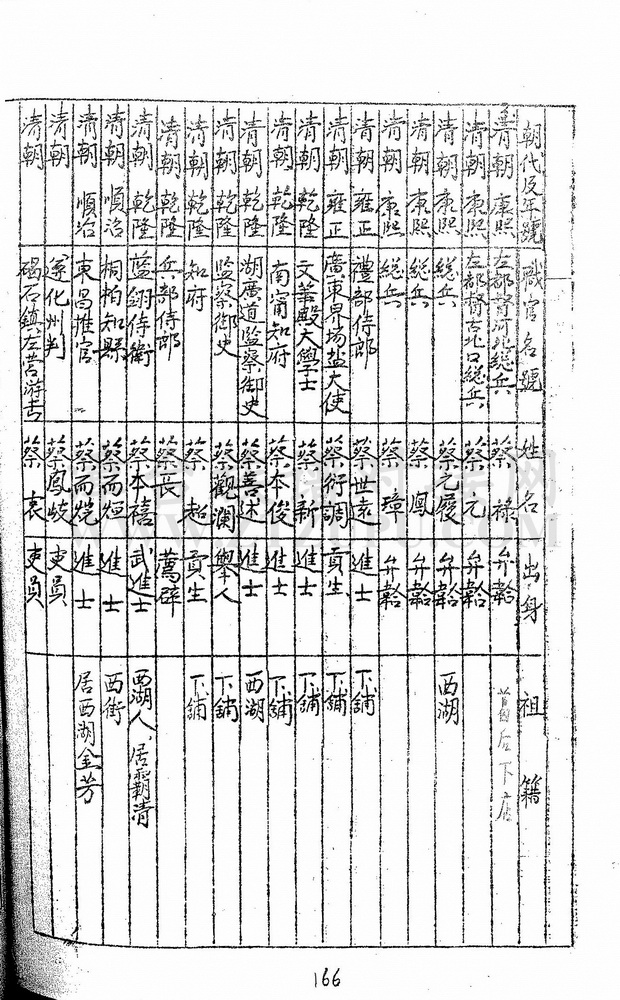 朝代及年號 職官名號 姓名 出身 祖籍
清朝 康熙 左都督河北總兵 蔡祿 弁韐 莆后下店
清朝 康熙 左都督古北口總兵 蔡元 弁韐
清朝 康熙 總兵 蔡元履 弁韐 西湖
清朝 康熙 總兵 蔡鳳 弁韐
清朝 康熙 總兵 蔡璋 弁韐
清朝 雍正 禮部侍郎 蔡世遠 進士 下舖
清朝 雍正 廣東界場盐大使 蔡衍調 貢生 下舖
清朝 乾隆 文華殿大學士 蔡新 進士 下舖
清朝 乾隆 南甯知府 蔡本俊 進士 下舖
清朝 乾隆 湖廣道監察御史 蔡善述 進士 西湖
清朝 乾隆 監察御史 蔡觀瀾 舉人 下舖
清朝 乾隆 知府 蔡超 貢生 下舖
清朝 乾隆 兵部侍郎 蔡長 薦辟
清朝 乾隆 藍翎侍衛 蔡本禧 武進士 西湖人,居霸清
清朝 順治 桐柏知縣 蔡而烜 進士 西街
清朝 順治 東昌推官 蔡而烷 進士 居西湖金芳
清朝 遂化州判 蔡鳳岐 吏員
清朝 碣石鎮左营游击 蔡袞 吏員
166